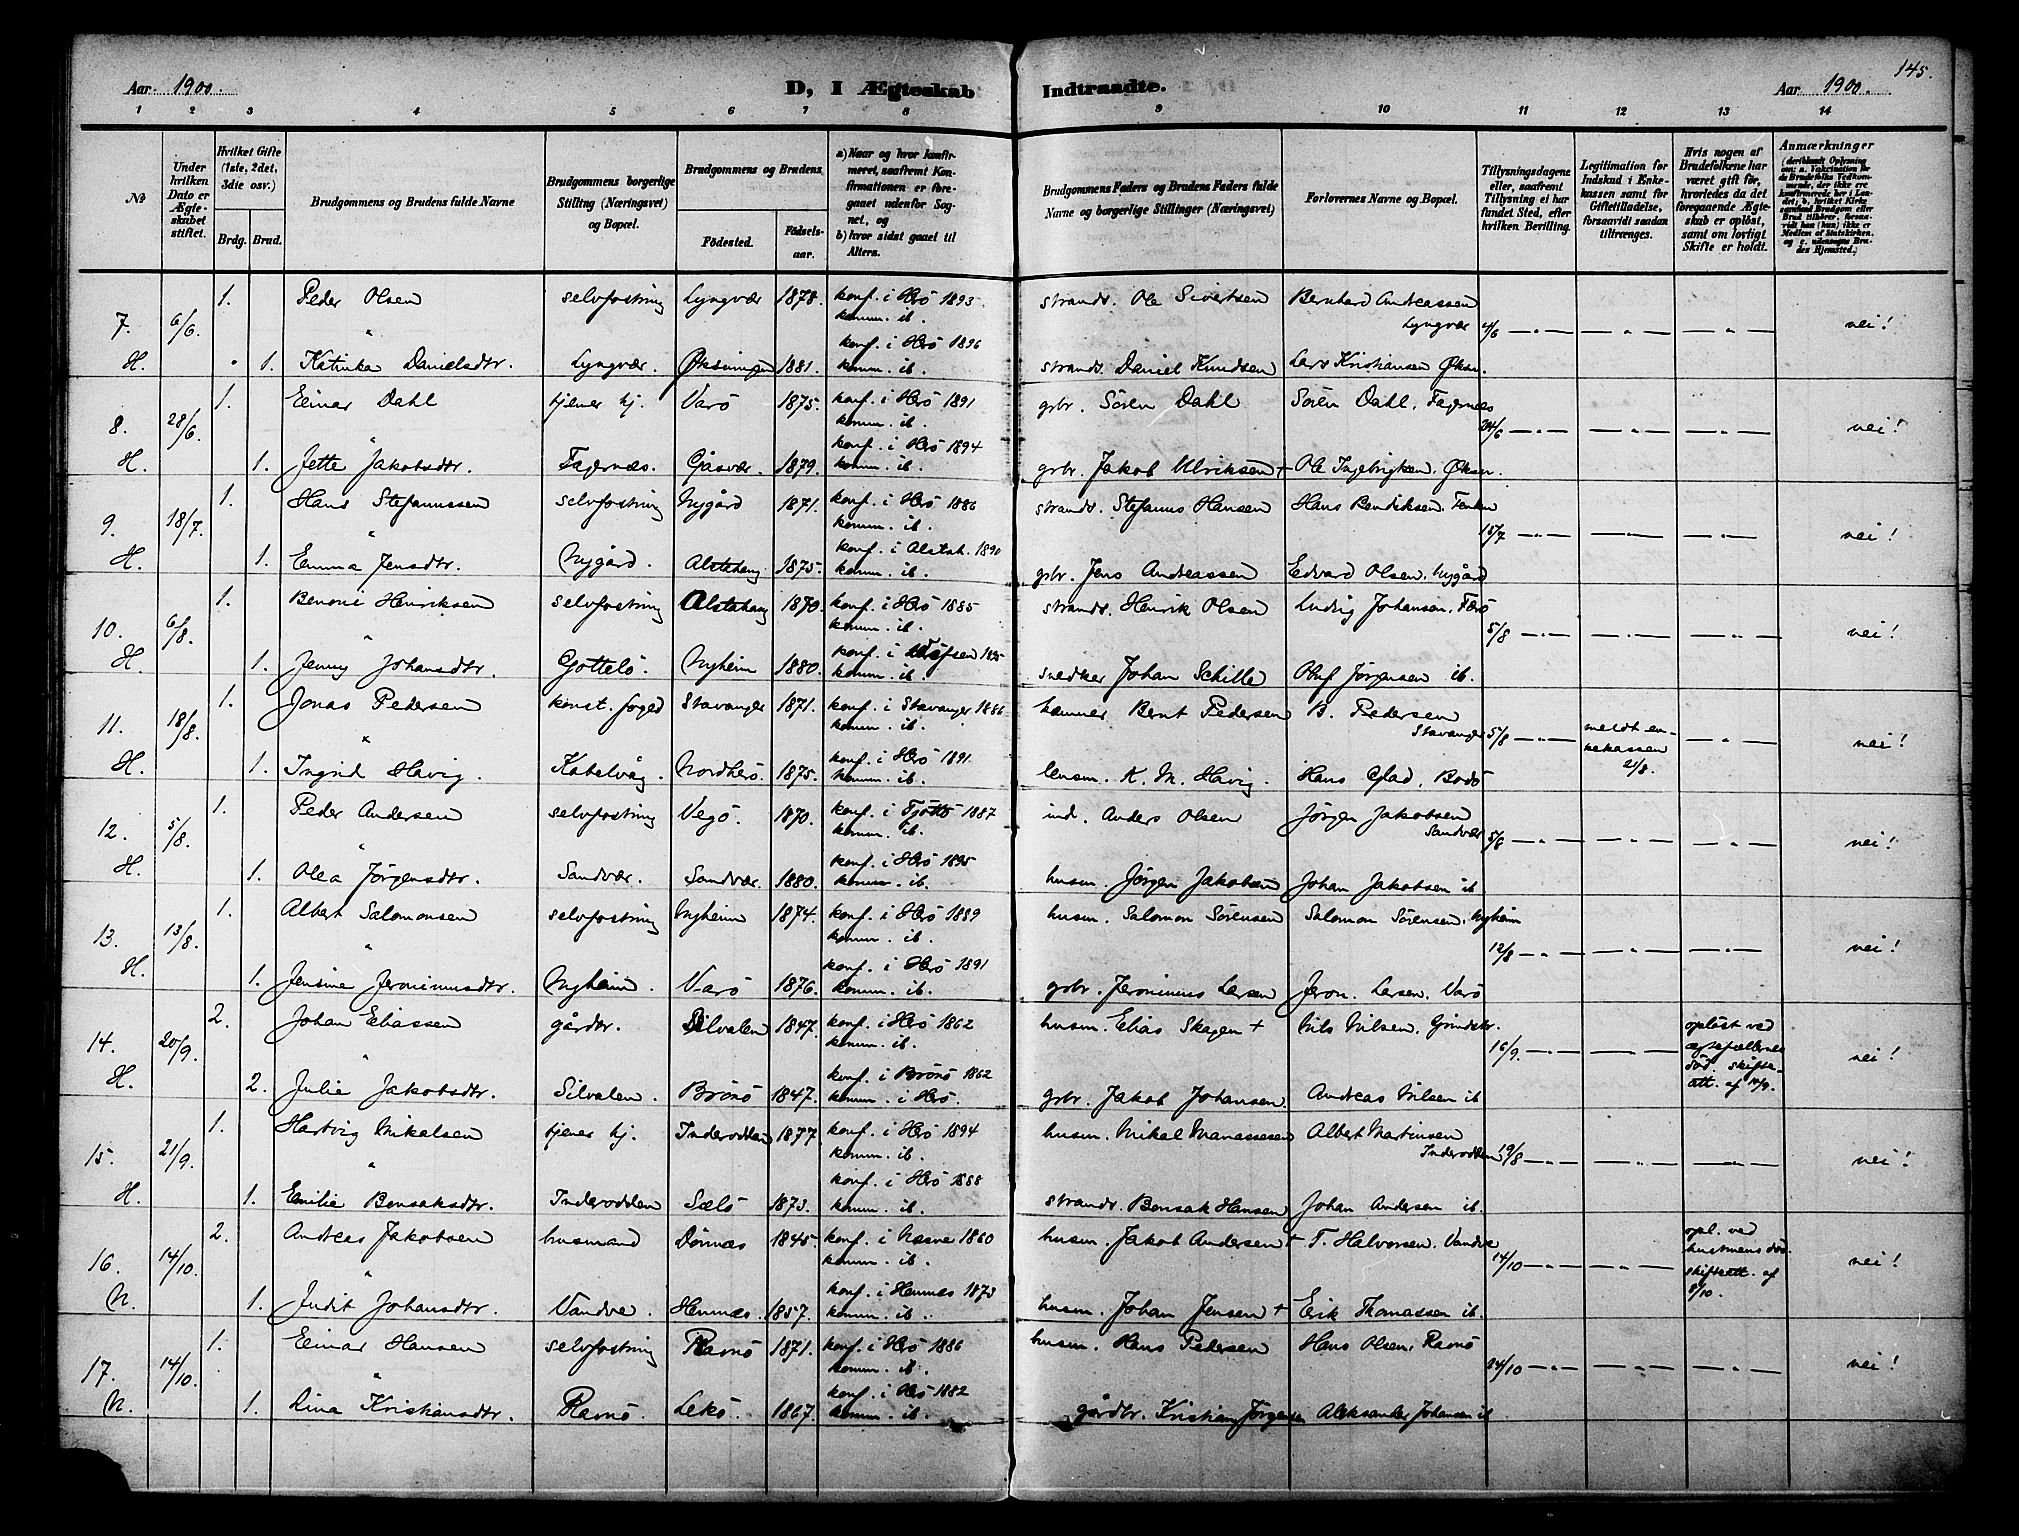 145.
Aar 1900. D, I Ægteskab Indtraadte. Aar 1900.
1 2 3 4 5 6 7 8 9 10 11 12 13 14
No
Under hvilken Dato er Ægteskabet stiftet.
Hvilket Gifte (1ste, 2det, 3die osv.)
Brdg. Brud.
Brudgommens og Brudens fulde Navne
Brudgommens borgerlige Stilling (Næringsvei) og Bopæl.
Brudgommens og Brudens
Fødested. Fødselsaar.
a) Naar og hvor konfirmeret, saafremt Konfirmationen er foregaaet udenfor Sognet, og
b) hvor sidst gaaet til Alters.
Brudgommens Faders og Brudens Faders fulde Navne og borgerlige Stillinger (Næringsvei)
Forlovernes Navne og Bopæl.
Tillysningsdagene eller, saafremt Tillysning ei har fundet Sted, efter hvilken Bevilling.
Legitimation for Indskud i Enkekassen samt for Giftetilladelse, forsaavidt saadan tiltrænges.
Hvis nogen af Brudefolkene har været gift før, hvorledes da det foregaaende Ægteskab er opløst, samt om lovligt Skifte er holdt.
Anmærkninger
7. 6/6. 1. Peder Olsen selvfostring Lyngvær 1878. konf. i Herö 1893 komm. ib. strands. Ole Sivertsen Bernhard Andreassen Lyngvær 4/6 nei!
H. 1. Katinka Danielsdtr. Lyngvær. Øksningen 1881. konf. i Herö 1896 komm. ib. strands. Daniel Knudsen Lars Kristiansen Øksn.
8. 28/6. 1. Einar Dahl tjener hj. Varö 1875. konf. i Herö 1891 komm. ib. grbr. Sören Dahl Sören Dahl, Fagernæs 24/6 nei!
H. 1. Jette Jakobsdtr. Fagernæs. Gåsvær. 1879. konf. i Herö 1894 komm. ib. grbr. Jakob Ulriksen + Ole Ingebrigtsen. Øksn.
9. 18/7. 1. Hans Stefanussen selvfostring Nygård 1871. konf. i Herö 1886 komm. ib. strands. Stefanus Hansen Hans Bendiksen. 15/7 nei!
H. 1. Emma Jensdtr. Nygård. Alstahaug 1875. konf. i Alstah. 1890 komm. ib. grbr. Jens Andreassen Edvard Olsen. Nygård
10. 6/8. 1. Benoni Henriksen selvfostring Alstahaug 1870. konf. i Herö 1885 komm. ib. strands. Henrik Olsen Ludvig Johansen. Færö 5/8 nei!
H. 1. Jenny Johansdtr. Gottelö. Nyheim 1880. konf. i Vefsen 1895 komm. ib. snedker Johan Schille Oluf Jörgensen ib.
11. 18/8. 1. Jonas Pedersen konst. foged Stavanger 1871. konf. i Stavanger 1886 komm. ib. Bernt Pedersen B. Pedersen Stavanger 5/8 meldt enkekassen 21/8. nei!
H. 1. Ingrid Havig. Kabelvåg. Nordherö. 1875. konf. i Herö 1891. komm. ib. lensm. K. M. Havig. Hans Glad, Bodö
12. 5/8. 1. Peder Andersen selvfostring Vegö. 1870. konf. i Tjöttö 1887 komm. ib. ind. Anders Olsen Jörgen Jakobsen Sandvær 5/6 nei!
H. 1. Olea Jörgensdtr. Sandvær. Sandvær. 1880. konf. i Herö 1895 komm. ib. husm. Jörgen Jakobsen Johan Jakobsen ib
13. 13/8. 1. Albert Salomonsen selvfostring Nyheim 1874. konf. i Herö 1889 komm. ib. husm. Salomon Sörensen Salomon Sörensen. Nyheim 12/8 nei!
H. 1. Jensine Jeronimusdtr. Nyheim. Varö 1876. konf. i Herö 1891 komm. ib. grbr. Jeronimus Larsen Jeron. Larsen. Varö
14. 20/9. 2. Johan Eliassen gårdbr. Silvalen 1847. konf. i Herö 1862 komm. ib. husm. Elias Skagen + Nils Nilsen. 16/9. oplöst ved ægtefællernes död. skifteatt. af 14/9. nei!
H. 2. Julie Jakobsdtr. Silvalen. Brönö 1847. konf. i Brönö 1862 komm. i Herö. grbr. Jakob Johansen. Andreas Nilsen ib
15. 21/9. 1. Hartvig Mikalsen tjener hj. Inderodden 1877. konf. i Herö 1894 komm. ib. husm. Mikal Manassesen Albert Martinsen Inderodden 19/8 nei!
H. 1. Emilie Bensaksdtr. Inderodden Sælö 1873. konf. i Herö 1888 komm. ib. strands. Bensak Hansen Johan Andersen ib.
16. 14/10. 2. Andreas Jakobsen husmand Dönnæs 1845. konf. i Næsne 1860 komm. ib. husm. Jakob Andersen + T. Halvorsen. Vandve 14/10 opl. ved hustruens död. skifteatt. af 8/10. nei!
N. 1. Judit Johansdtr. Vandve. Hemnæs. 1857. konf. i Hemnæs 1873 komm. ib. husm. Johan Jensen + Erik Thomassen ib.
17. 14/10. 1. Einar Hansen selvfostring Ravnö 1871. konf. i Herö 1886 komm. ib. husm. Hans Pedersen Hans Olsen. Ravnö 24/10 nei!
N. 1. Lina Kristiansdtr. Ravnö. Lekö. 1867. konf. i Herö 1882 komm. ib. gårdbr. Kristian Jörgensen Aleksander Johansen ib